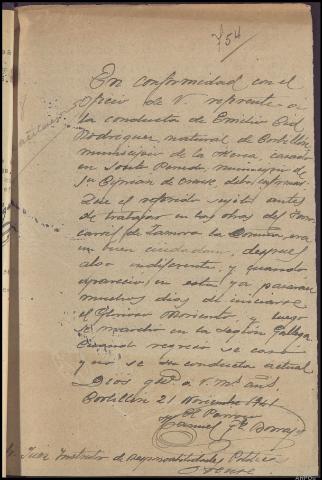 754
En conformidad con el
Oficio de V. referente a
la conducta de Emilio Cid
Rodriguez, natural de Cortellin
municipio de la Merca, casado
en Soutopenedo, municipio de
Sn Ciprian de Viñas, debo informar:
Que el referido sujeto antes
de trabajar en las obras del ferro
carril de Zamora la Coruña, era
un buen ciudadano, despues
algo indiferente, y quando
aparecio en esta, ya pasaran
muchos dias de iniciarse
el Glorioso Movimiento, y luego
se marchó en la Legión Gallega
Cuando regresó se casó
y no se su conducta actual
Dios gue a V. ms ans.
21 Noviembre 1941
El Parroco
Manuel
Sr. Juez Instructor de Responsabilidades Politicas
Orense